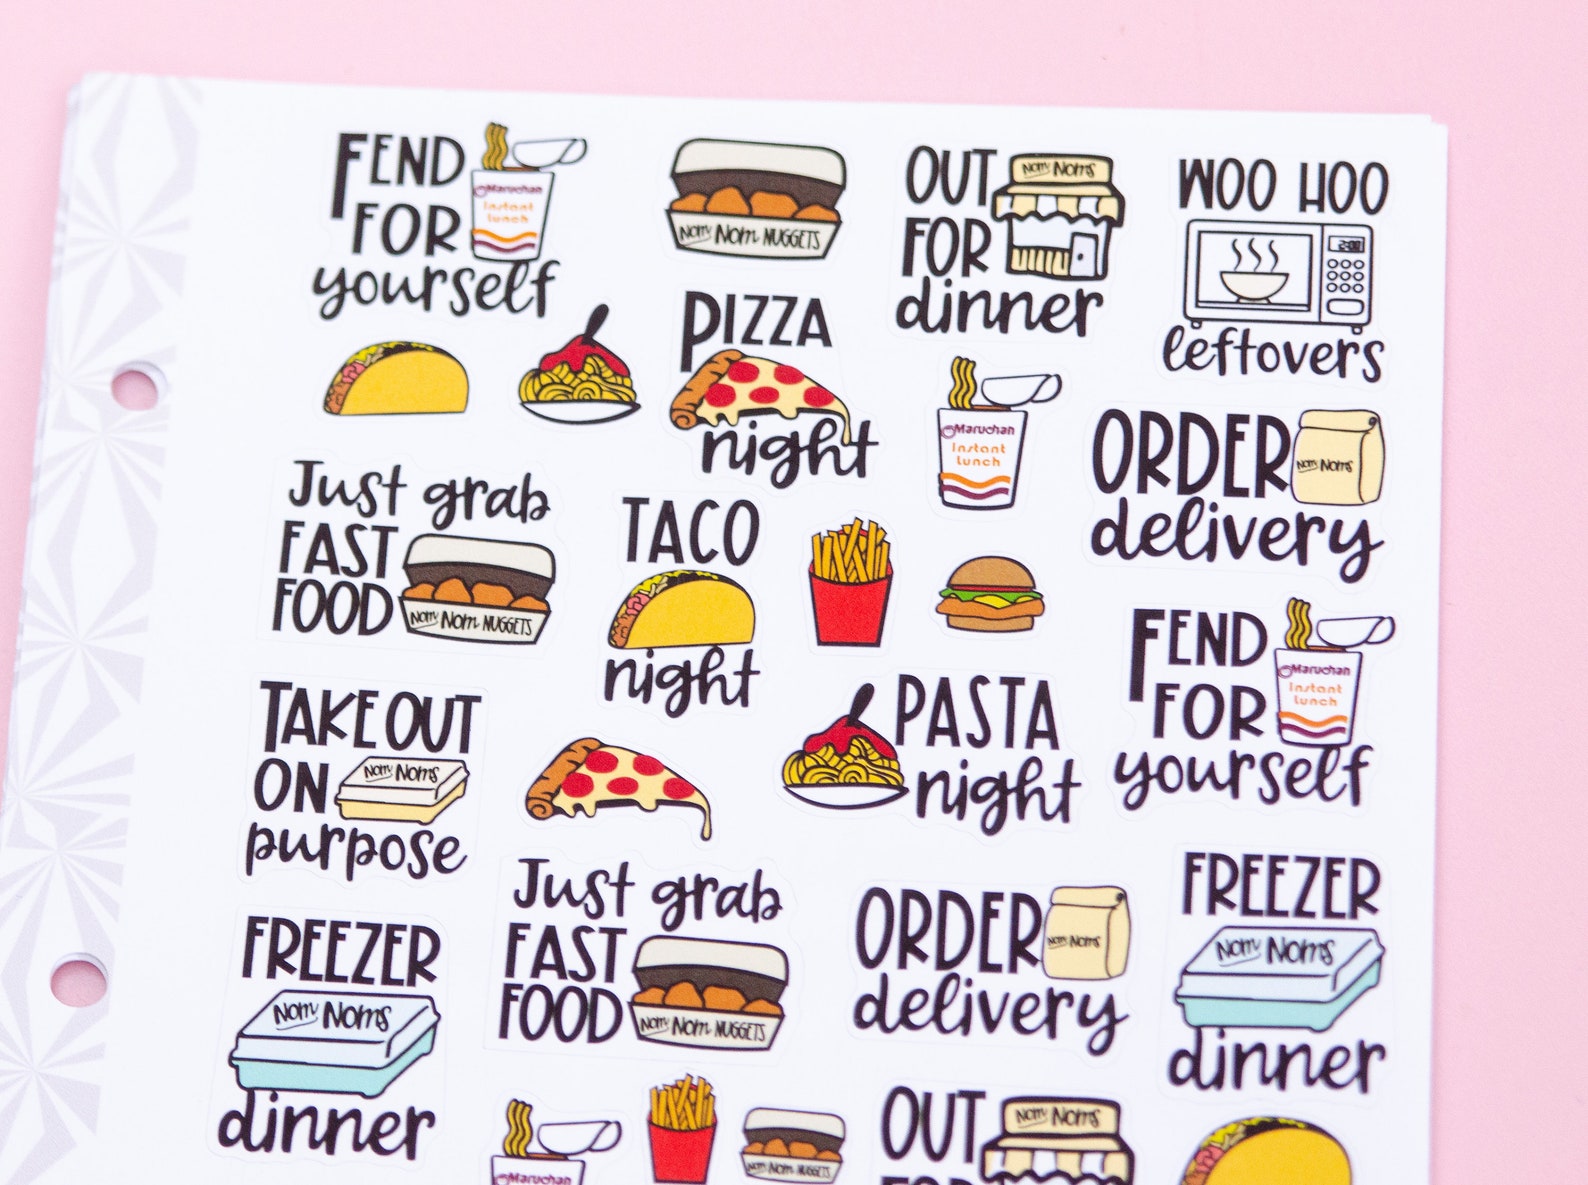 FEND
FOR
yourself
Maruchan
Instant
Lunch
Nom Nom NUGGETS
OUT
FOR
dinner
Nom Noms
WOO HOO
2:00
leftovers
PIZZA
night
Maruchan
Instant
Lunch
ORDER
delivery
Nom Noms
Just grab
FAST
FOOD
Nom Nom NUGGETS
TACO
night
FEND
FOR
yourself
Maruchan
Instant
Lunch
TAKE OUT
ON
purpose
Nom Noms
PASTA
night
Just grab
FAST
FOOD
Nom Nom NUGGETS
ORDER
delivery
Nom Noms
FREEZER
Nom Noms
dinner
FREEZER
Nom Noms
dinner
Maruchan
Nom Nom NUGGETS
OUT
Nom Noms
FOR